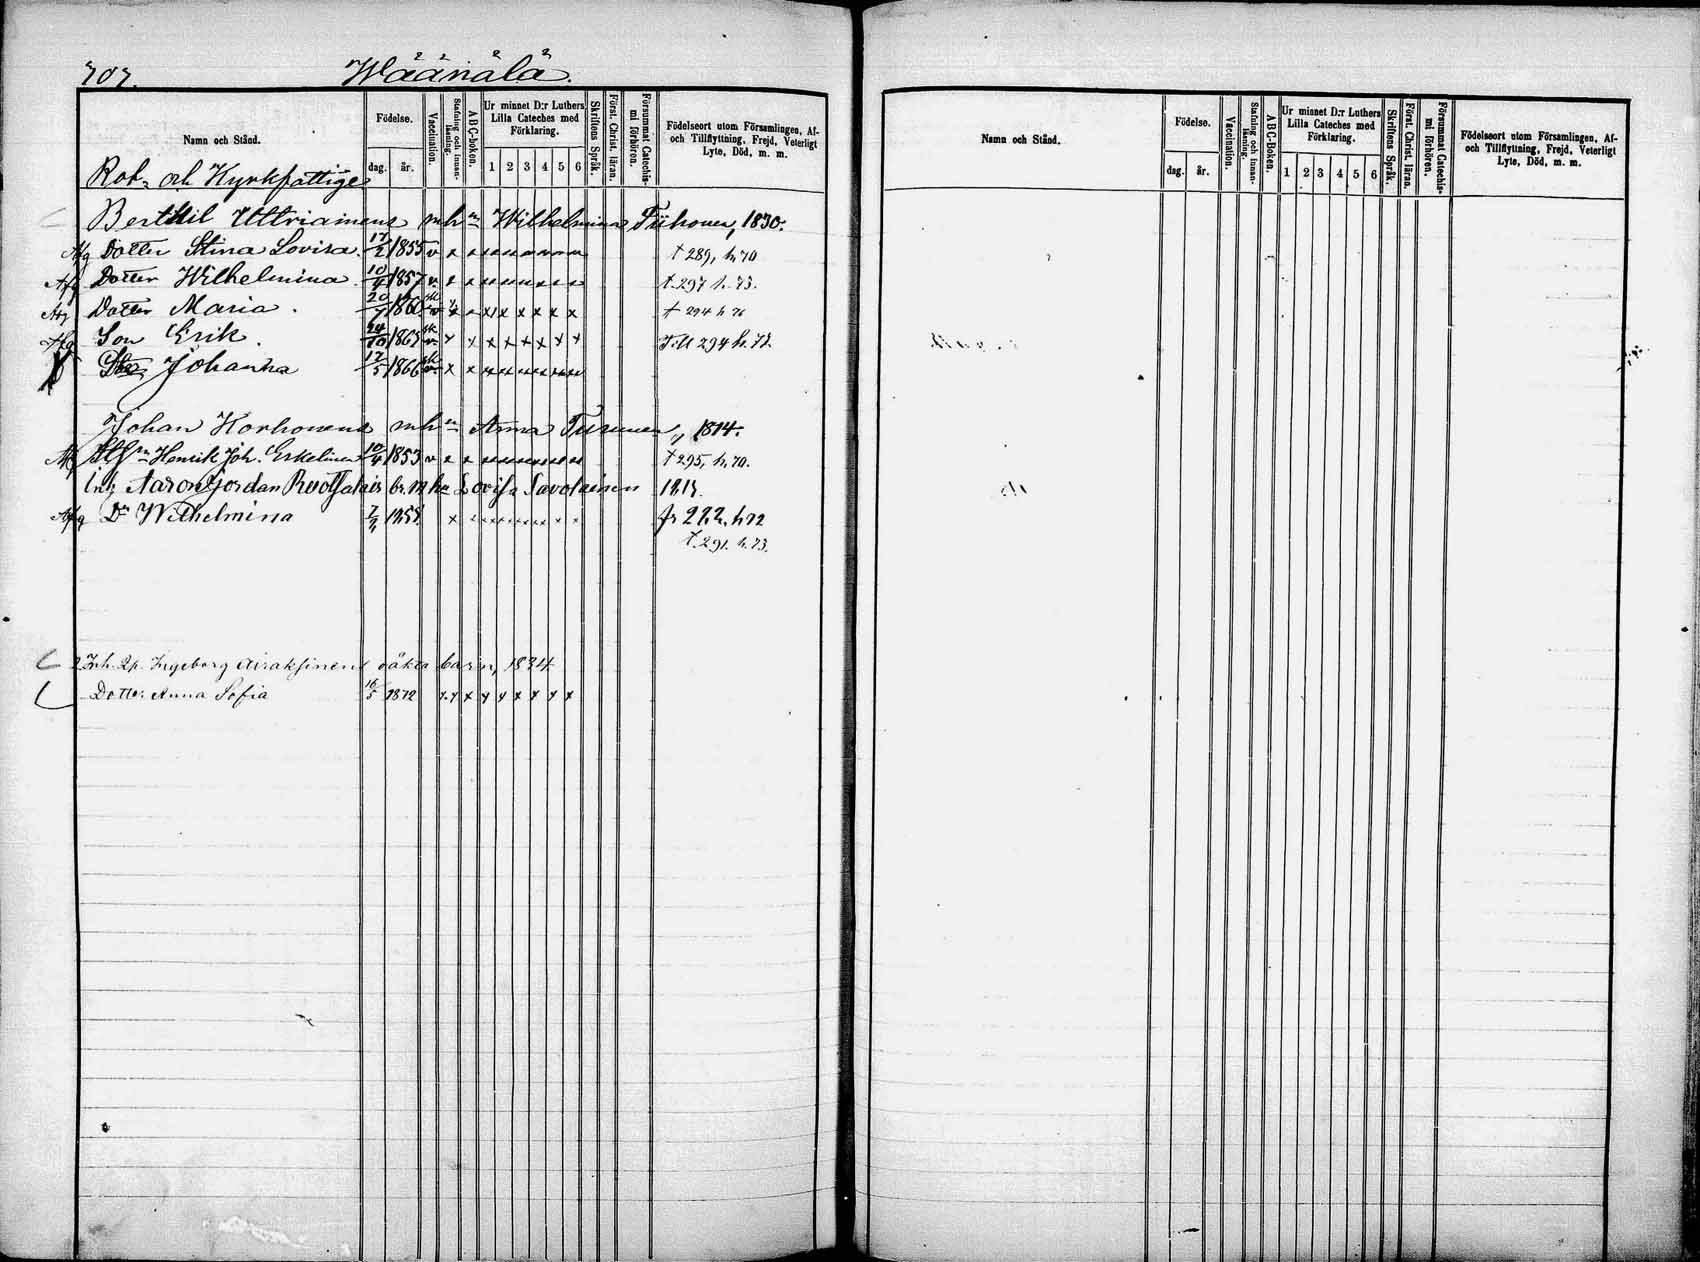 707. Wäänälä.
Namn och Stånd. Födelse. dag. år. Vaccination. Stafning och Innanläsning. ABC-boken. Ur minnet D:r Luthers Lilla Cateches med Förklaring. 1 2 3 4 5 6 Skriftens Språk. Först. Christ. läran. Försummat Catechismi förhören. Födelseort utom Församlingen, Af- och Tillflyttning, Frejd, Veterligt Lyte, Död, m. m.
Rot- och Kyrkfattige
Berthil Uttriainens mhn Wilhelmina Tiihonen, 1830.
Afg Dotter Stina Lovisa. 17/2 1855 v x x x x x x x x † 289, h. 70
Afg Dotter Wilhelmina 10/4 1857 v x x x x x x x x t. 297 h. 73.
Afg Dotter Maria. 20/7 1860 v x x x x x x x x t 294 h 76
Afg Son Erik. 24/10 1867 v x x x x x x x x 294 h. 77.
Johanna 17/5 1866 v x x x x x x x x
Johan Korhonens mhn Anna Turunen, 1814.
Henrik Joh. Eskelinen 10/4 1853 v x x x x x x x x t 295, h. 70.
Inh Aaron Jordan Ruotsalais br. m hn Lovisa Savolainen 1815.
Afg Dr Wilhelmina 1858 x x x x x x x x fr 272. h. 72
t. 291. h. 73.
Inh. Qp. Ingeborg Airaksinens oäkta barn, 1834
Dotter Anna Sofia 16/5 1872 x x x x x x x x
Namn och Stånd. Födelse. dag. år. Vaccination. Stafning och Innanläsning. ABC-Boken. Ur minnet D:r Luthers Lilla Cateches med Förklaring. 1 2 3 4 5 6 Skriftens Språk. Först. Christ. läran. Försummat Catechismi förhören. Födelseort utom Församlingen, Af- och Tillflyttning, Frejd, Veterligt Lyte, Död, m. m.